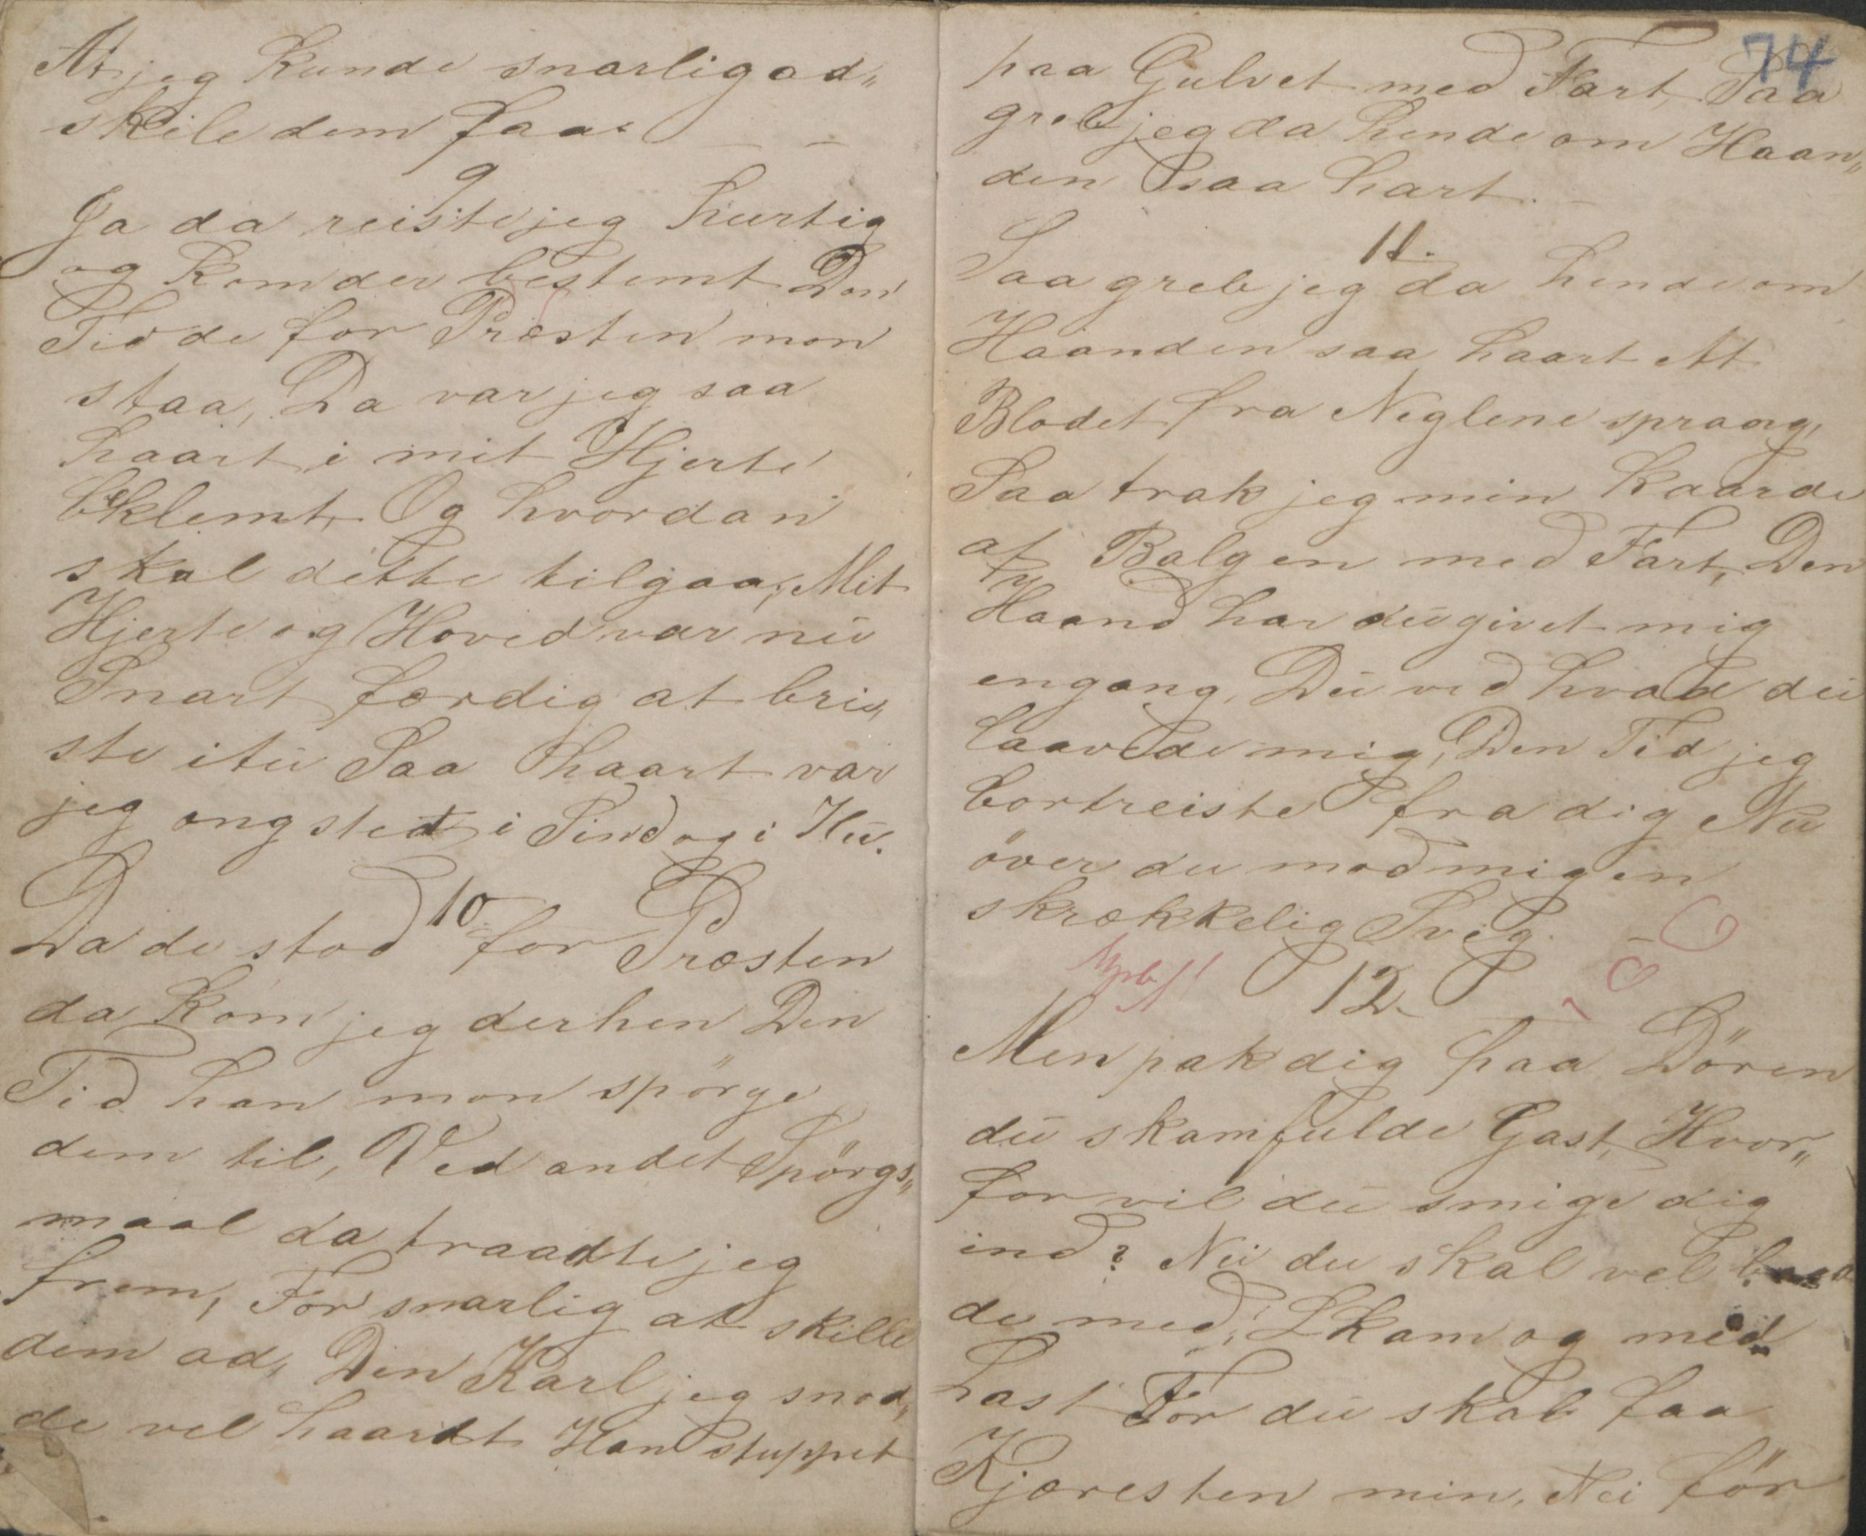 At jeg kunde snarlig ad„
skile dem faae — —
9
Ja da reiste jeg hurtig
og kom der bestemt Den
Tid de for Præsten mon
staa, Da var jeg saa
haart i mit Hjerte
beklemt, Og hvordan
skal dette tilgaa, Mit
Hjerte og Hoved var nu
Snart færdig at bri„
ste itu Saa haart var
jeg ængsted i Sind og i Hu.
10
Da de stod for Præsten
da kom jeg derhen Den
Tid han mon spörge
dem til, Ved andet Spörgs„
maal da traadte jeg
frem, For snarlig at skille
dem ad, Den Karl jeg snod„
de vel haardt Han stuppet
74
paa Gulvet med Fart, Saa
greb jeg da hende om Haan„
den saa hart. —
11.
Saa greb jeg da hende om
Haanden saa haart At
Blodet fra Neglene spraang,
Saa trak jeg min Kaarde
af Balgen med Fart, Den
Haand har du givet mig
engang, Du ved hvad du
laavede mig, Den Tid jeg
bortreiste fra dig Nu
över du mod mig en
skrækkelig Svig.
12.
Men pak dig paa Dören
du skamfulde Gast, Hvor„
for vil du smige dig
ind? Nei du skal vel
de med, Skam og med
Last For du skal faa
Kjæresten min, Nei för